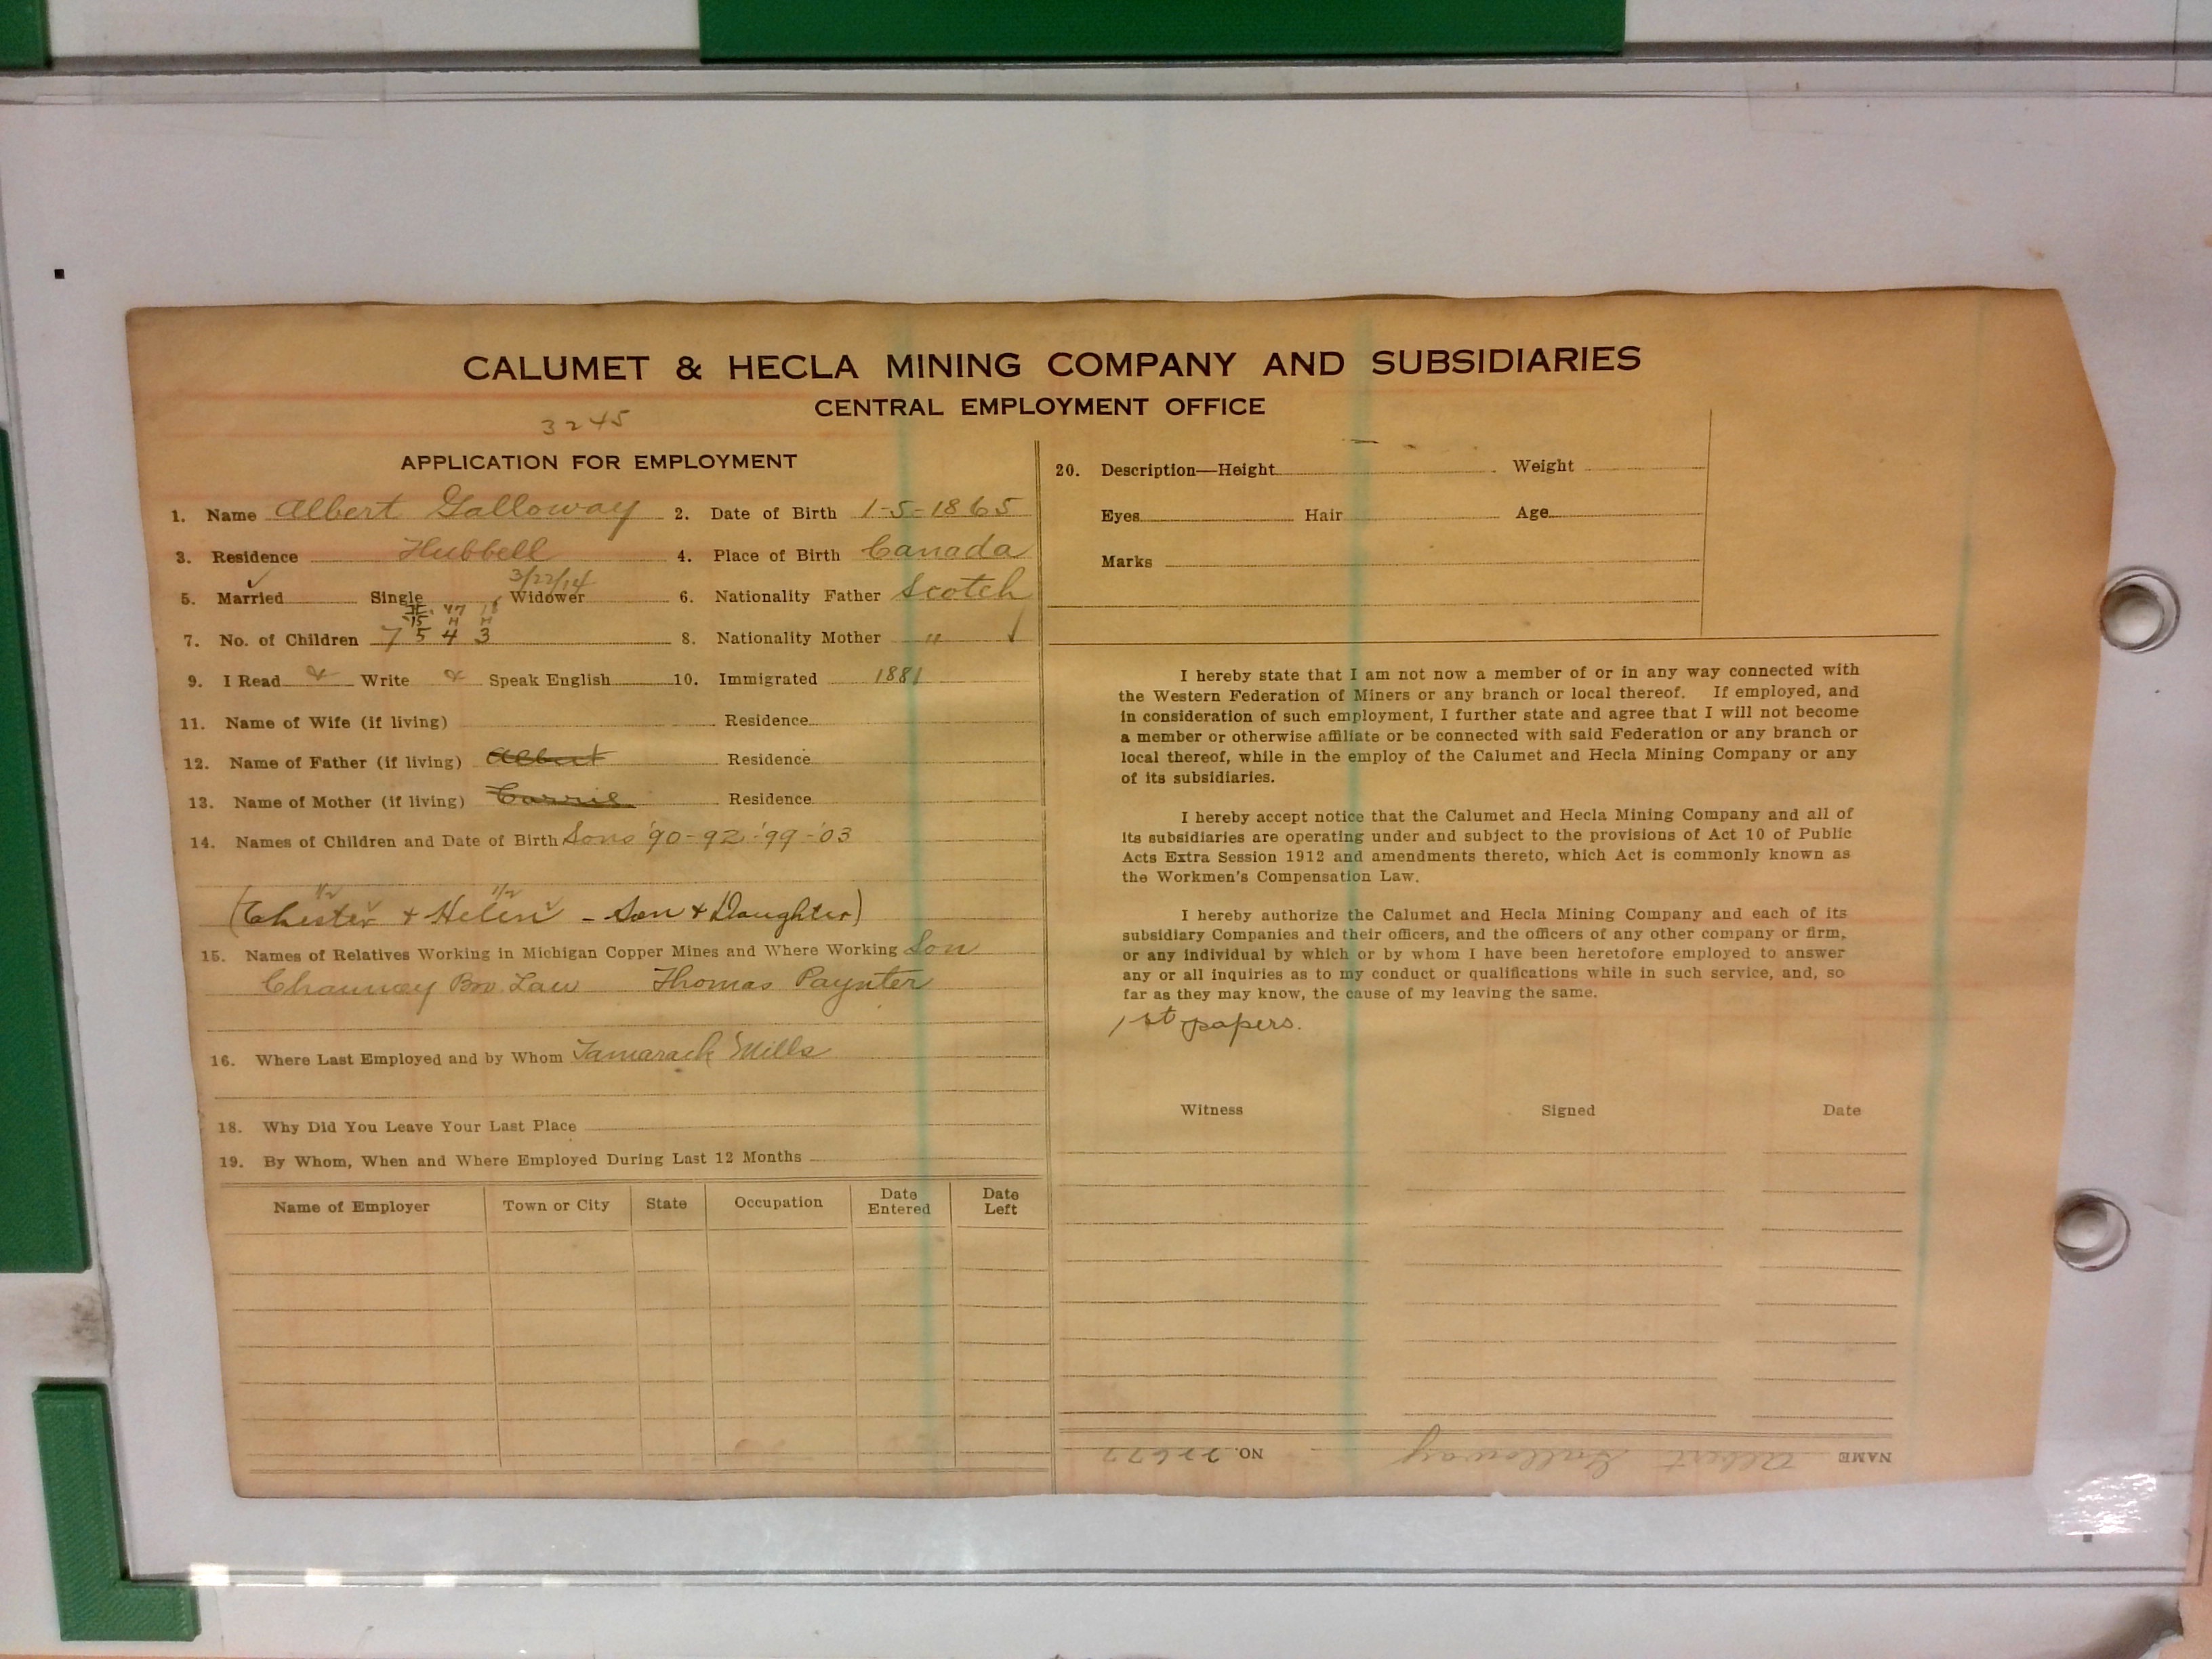 CALUMET & HECLA MINING COMPANY AND SUBSIDIARIES
CENTRAL EMPLOYMENT OFFICE
3245
APPLICATION FOR EMPLOYMENT
1. Name Albert Galloway 2. Date of Birth 1-5-1865
3. Residence Hubbell 4. Place of Birth Canada
3/22/14
5. Married ✓ Single Widower 6. Nationality Father Scotch
7. No. of Children 7 5 4 3 8. Nationality Mother " ✓
9. I Read Write Speak English 10. Immigrated 1881
11. Name of Wife (if living) Residence
12. Name of Father (if living) Albert Residence
13. Name of Mother (if living) Carrie Residence
14. Names of Children and Date of Birth Sons '90-92-'99-'03
1/2 1/2
(Chester + Helen - Son + Daughter)
15. Names of Relatives Working in Michigan Copper Mines and Where Working Son
Chauncey Bro. Law Thomas Paynter
16. Where Last Employed and by Whom Tamarack Mills
18. Why Did You Leave Your Last Place
19. By Whom, When and Where Employed During Last 12 Months
Name of Employer Town or City State Occupation Date Entered Date Left
20. Description—Height Weight
Eyes Hair Age
Marks
I hereby state that I am not now a member of or in any way connected with
the Western Federation of Miners or any branch or local thereof. If employed, and
in consideration of such employment, I further state and agree that I will not become
a member or otherwise affiliate or be connected with said Federation or any branch or
local thereof, while in the employ of the Calumet and Hecla Mining Company or any
of its subsidiaries.
I hereby accept notice that the Calumet and Hecla Mining Company and all of
its subsidiaries are operating under and subject to the provisions of Act 10 of Public
Acts Extra Session 1912 and amendments thereto, which Act is commonly known as
the Workmen's Compensation Law.
I hereby authorize the Calumet and Hecla Mining Company and each of its
subsidiary Companies and their officers, and the officers of any other company or firm,
or any individual by which or by whom I have been heretofore employed to answer
any or all inquiries as to my conduct or qualifications while in such service, and, so
far as they may know, the cause of my leaving the same.
1st papers.
Witness Signed Date
NAME Albert Galloway NO. 22677